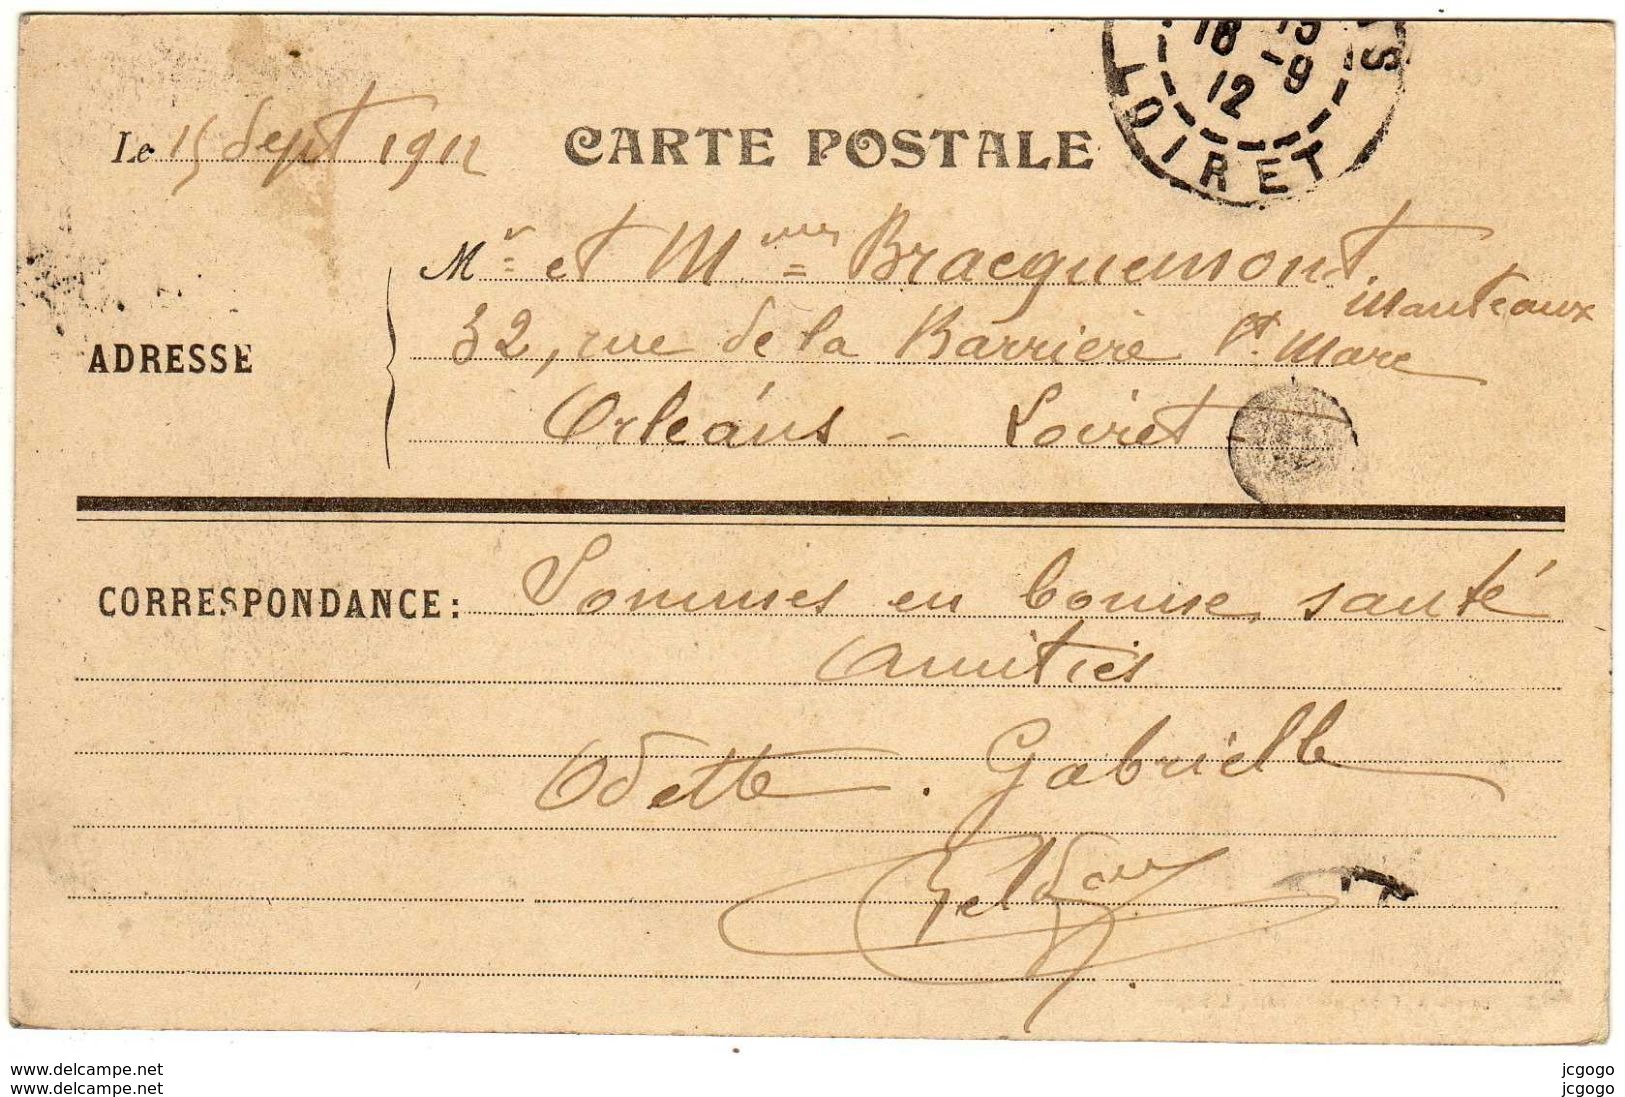 Le 15 Sept 1912
CARTE POSTALE
18 15
-9
12
LOIRET
Mr et Mme Bracquemont
Manteaux
ADRESSE
32, rue de la Barrière St. Marc
Orléans - Loiret
CORRESPONDANCE: Sommes en bonne santé
Amitiés
Odette. Gabrielle
www.delcampe.net
jcgogo
www.delcampe.net
jcgogo